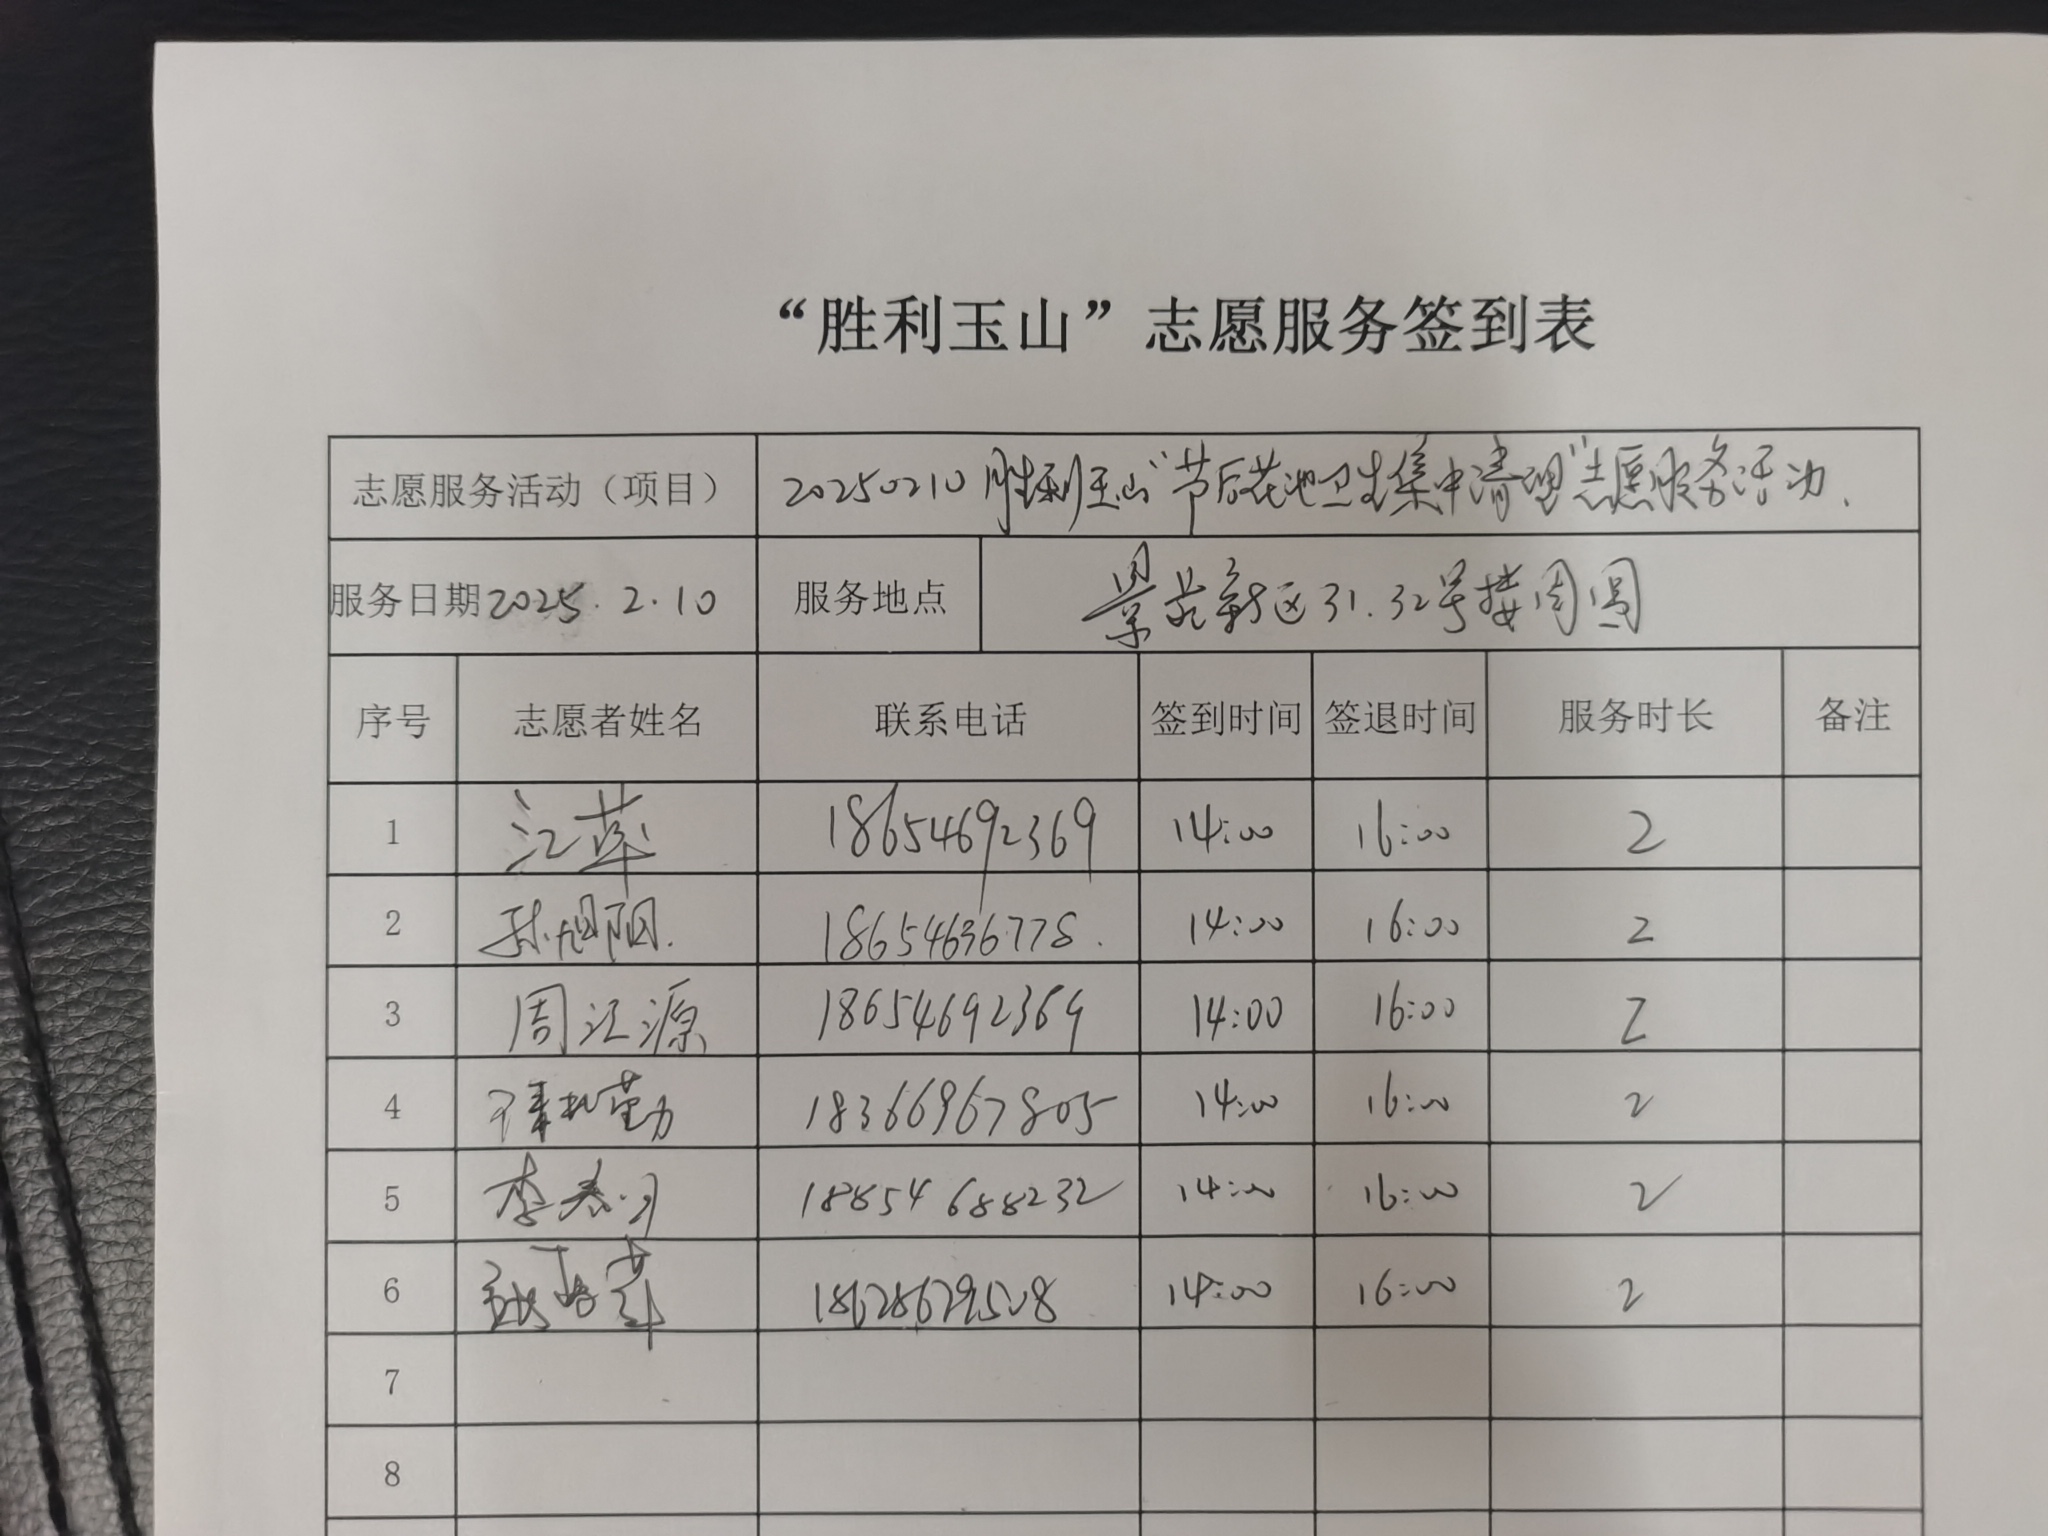 “胜利玉山”志愿服务签到表
志愿服务活动（项目） 20250210胜利玉山“节后花池卫生集中清理”志愿服务活动.
服务日期2025.2.10 服务地点 景苑新区31.32号楼周围
序号 志愿者姓名 联系电话 签到时间 签退时间 服务时长 备注
1 江苹 18654692369 14:00 16:00 2
2 孙旭阳. 18654636778. 14:00 16:00 2
3 周江源 18654692369 14:00 16:00 2
4 18366967805 14:00 16:00 2
5 李春 18854688232 14:00 16:00 2
6 18628629508 14:00 16:00 2
7
8